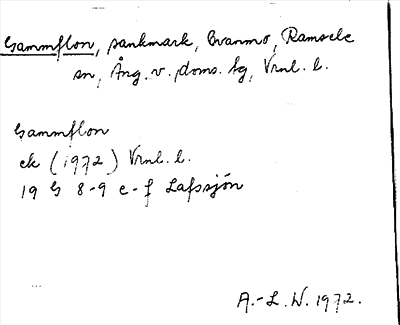 Gammflon, sankmark, Evanmo, Ramsele
sn, Ång. v. doms. sg, Vrnl. l.
Gammflon
ek (1972) Vrnl. l.
19 G 8-9 e-f Lafssjön
A.-L. W. 1972.